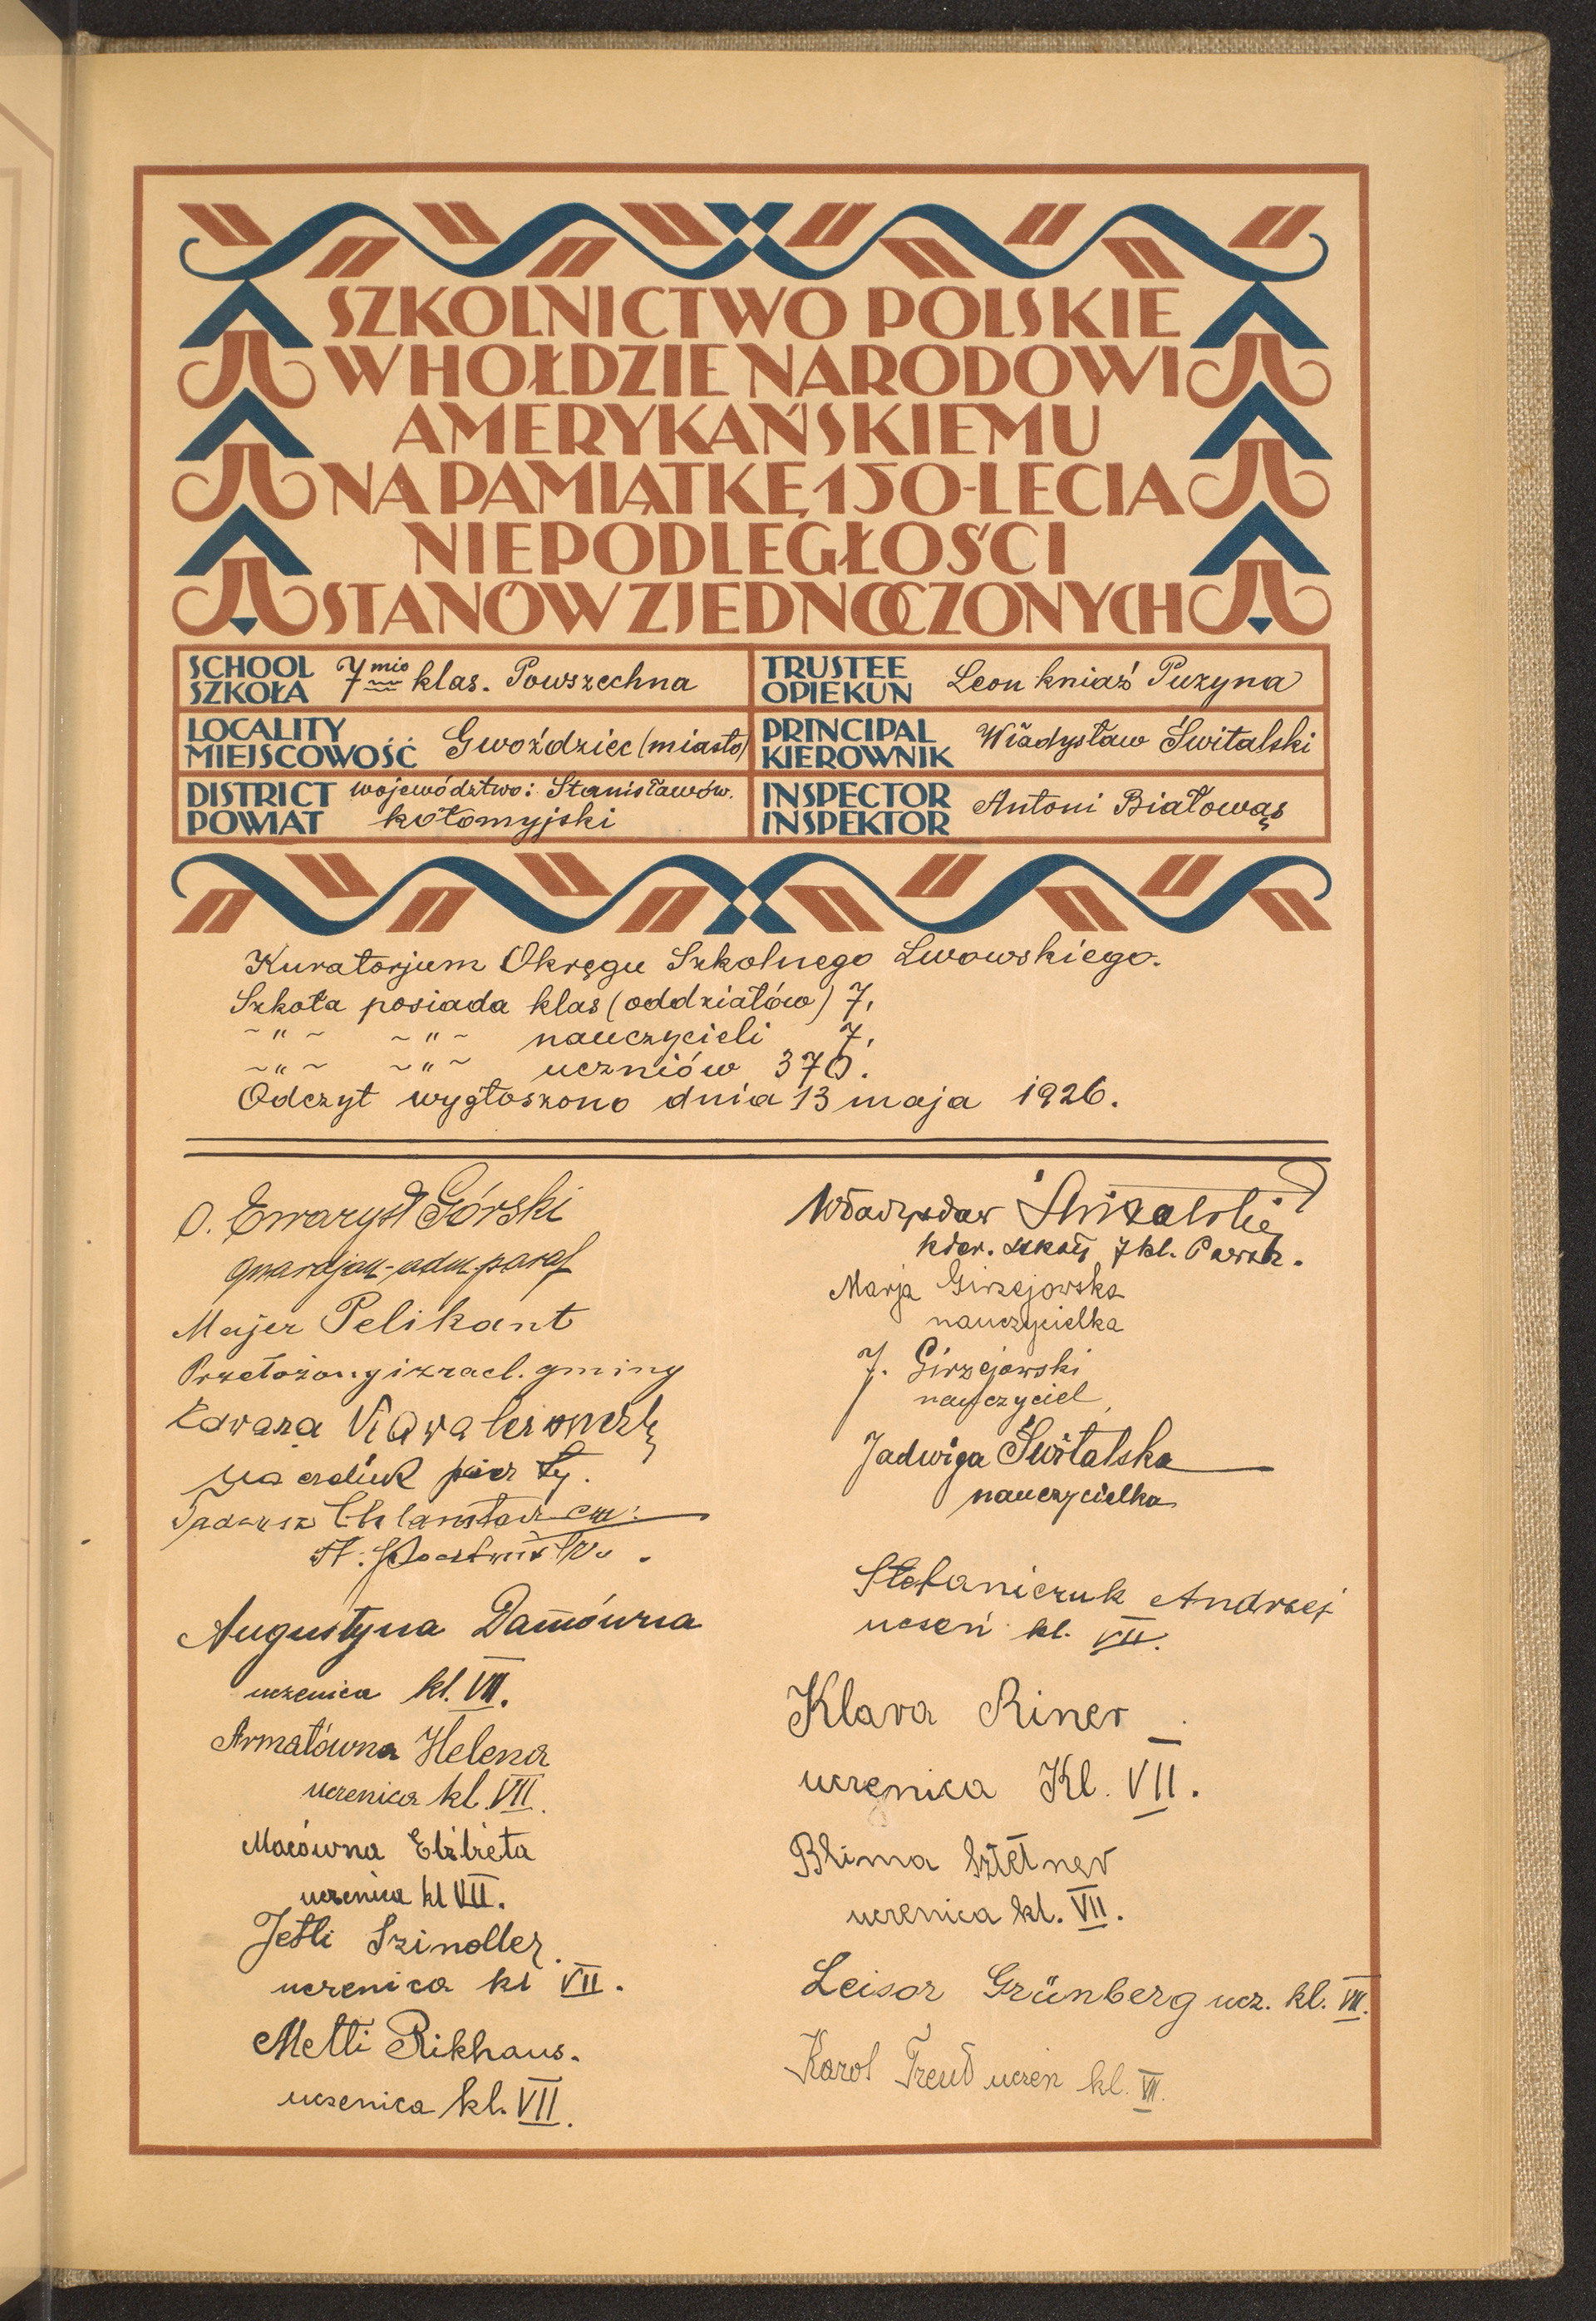 SZKOLNICTWO POLSKIE
W HOŁDZIE NARODOWI
AMERYKAŃSKIEMU
NA PAMIĄTKĘ 150-LECIA
NIEPODLEGŁOŚCI
STANÓW ZJEDNOCZONYCH
SCHOOL
SZKOŁA
7mio klas. Powszechna
TRUSTEE
OPIEKUN
Leon kniaź Puzyna
LOCALITY
MIEJSCOWOŚĆ
Gwoździec (miasto)
PRINCIPAL
KIEROWNIK
Władysław Świtalski
DISTRICT
POWIAT
województwo: Stanisławów.
kołomyjski
INSPECTOR
INSPEKTOR
Antoni Białowąs
Kuratorjum Okręgu Szkolnego Lwowskiego.
Szkoła posiada klas (oddziałów) 7.
~ " ~ ~ " ~ nauczycieli 7.
~ " ~ ~ " ~ uczniów 370.
Odczyt wygłoszono dnia 13 maja 1926.
O. Ewaryst Górski
gwardjan-adm. paraf
Majer Pelikant
Przełożony izrael. gminy
Tadeusz
Augustyna Damówna
uczenica kl. VII.
Armatówna Helena
uczenica kl. VII.
Macówna Elżbieta
uczenica kl VII.
Jetti Szindler
uczenica kl VII.
Metti Rikhaus.
uczenica kl. VII.
Władysław Świtalski
kier. szkoły 7 kl. Powsz.
Marja Girzejowska
nauczycielka
J. Girzejowski
nauczyciel
Jadwiga Świtalska
nauczycielka
Stefaniczuk Andrzej
uczeń kl. VII.
Klara Riner
uczenica Kl. VII.
Blima Sztetner
uczenica kl. VII.
Leisor Grünberg ucz. kl. VII.
Karol Freud uczen kl. VII.